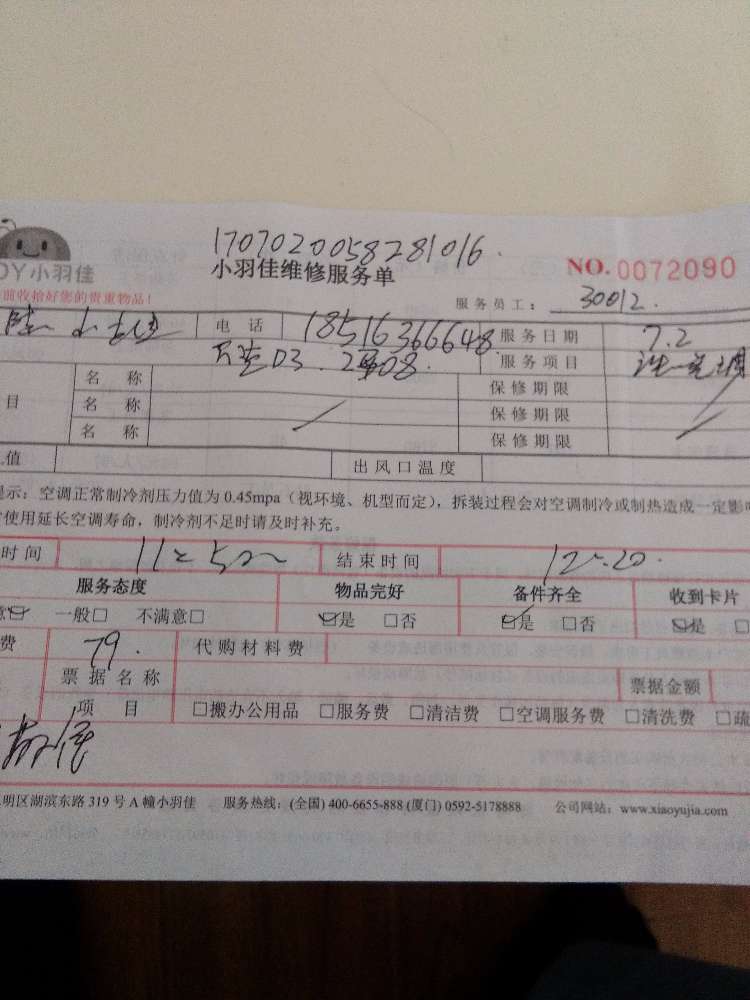 1707020058281016
小羽佳维修服务单
NO.0072090
OY小羽佳
前收拾好您的贵重物品！
服务员工： 30012.
电 话 18516366648 服务日期 7.2
D3. 服务项目 洗空调
名 称 保修期限
目 名 称 保修期限
名 称 保修期限
值 出风口温度
示：空调正常制冷剂压力值为 0.45mpa（视环境、机型而定），拆装过程会对空调制冷或制热造成一定影
使用延长空调寿命，制冷剂不足时请及时补充。
时间 结束时间
服务态度 物品完好 备件齐全 收到卡片
意☑ 一般□ 不满意□ ☑是 □否 ☑是 □否 ☑是 □
费 79. 代购材料费
票据名称 票据金额
项 目 □搬办公用品 □服务费 □清洁费 □空调服务费 □清洗费 □疏
明区湖滨东路 319 号 A 幢小羽佳 服务热线：(全国) 400-6655-888 (厦门) 0592-5178888 公司网站：www.xiaoyujia.com